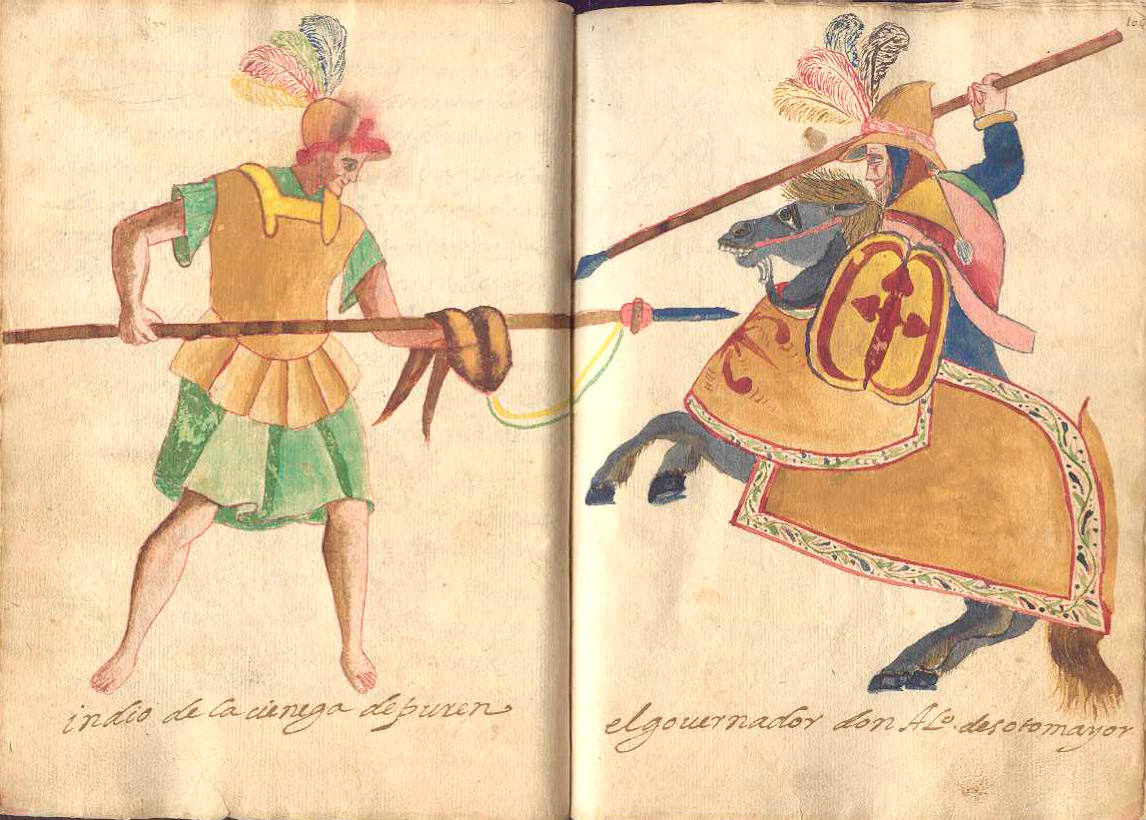 indio de la cienega de puren
el gouernador don Alo. de sotomayor